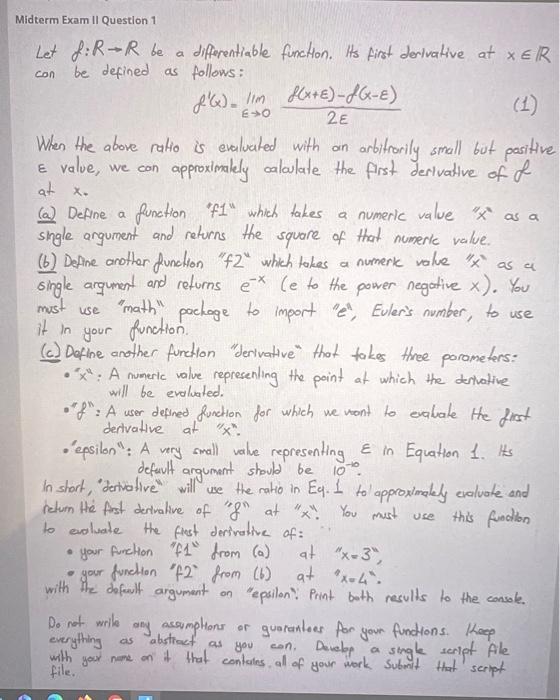 Midterm Exam II Question 1
Let f:R→R be a differentiable function. Its first derivative at x ∈ R
can be defined as follows:
f'(x) = lim ε→0 f(x+ε)-f(x-ε) / 2ε (1)
When the above ratio is evaluated with an arbitrarily small but positive
ε value, we can approximately calculate the first derivative of f
at x.
(a) Define a function "f1" which takes a numeric value "x" as a
single argument and returns the square of that numeric value.
(b) Define another function "f2" which takes a numeric value "x" as a
single argument and returns e^-x (e to the power negative x). You
must use "math" package to import "e", Euler's number, to use
it in your function.
(c) Define another function "derivative" that takes three parameters:
• "x": A numeric value representing the point at which the derivative
will be evaluated.
• "f": A user defined function for which we want to evaluate the first
derivative at "x".
• "epsilon": A very small value representing ε in Equation 1. Its
default argument should be 10^-10.
In short, "derivative" will use the ratio in Eq. 1 to approximately evaluate and
return the first derivative of "f" at "x". You must use this function
to evaluate the first derivative of:
• your function "f1" from (a) at "x=3",
• your function "f2" from (b) at "x=4".
with the default argument on "epsilon". Print both results to the console.
Do not write any assumptions or guarantees for your functions. Keep
everything as abstract as you can. Develop a single script file
with your name on it that contains all of your work. Submit that script
file.